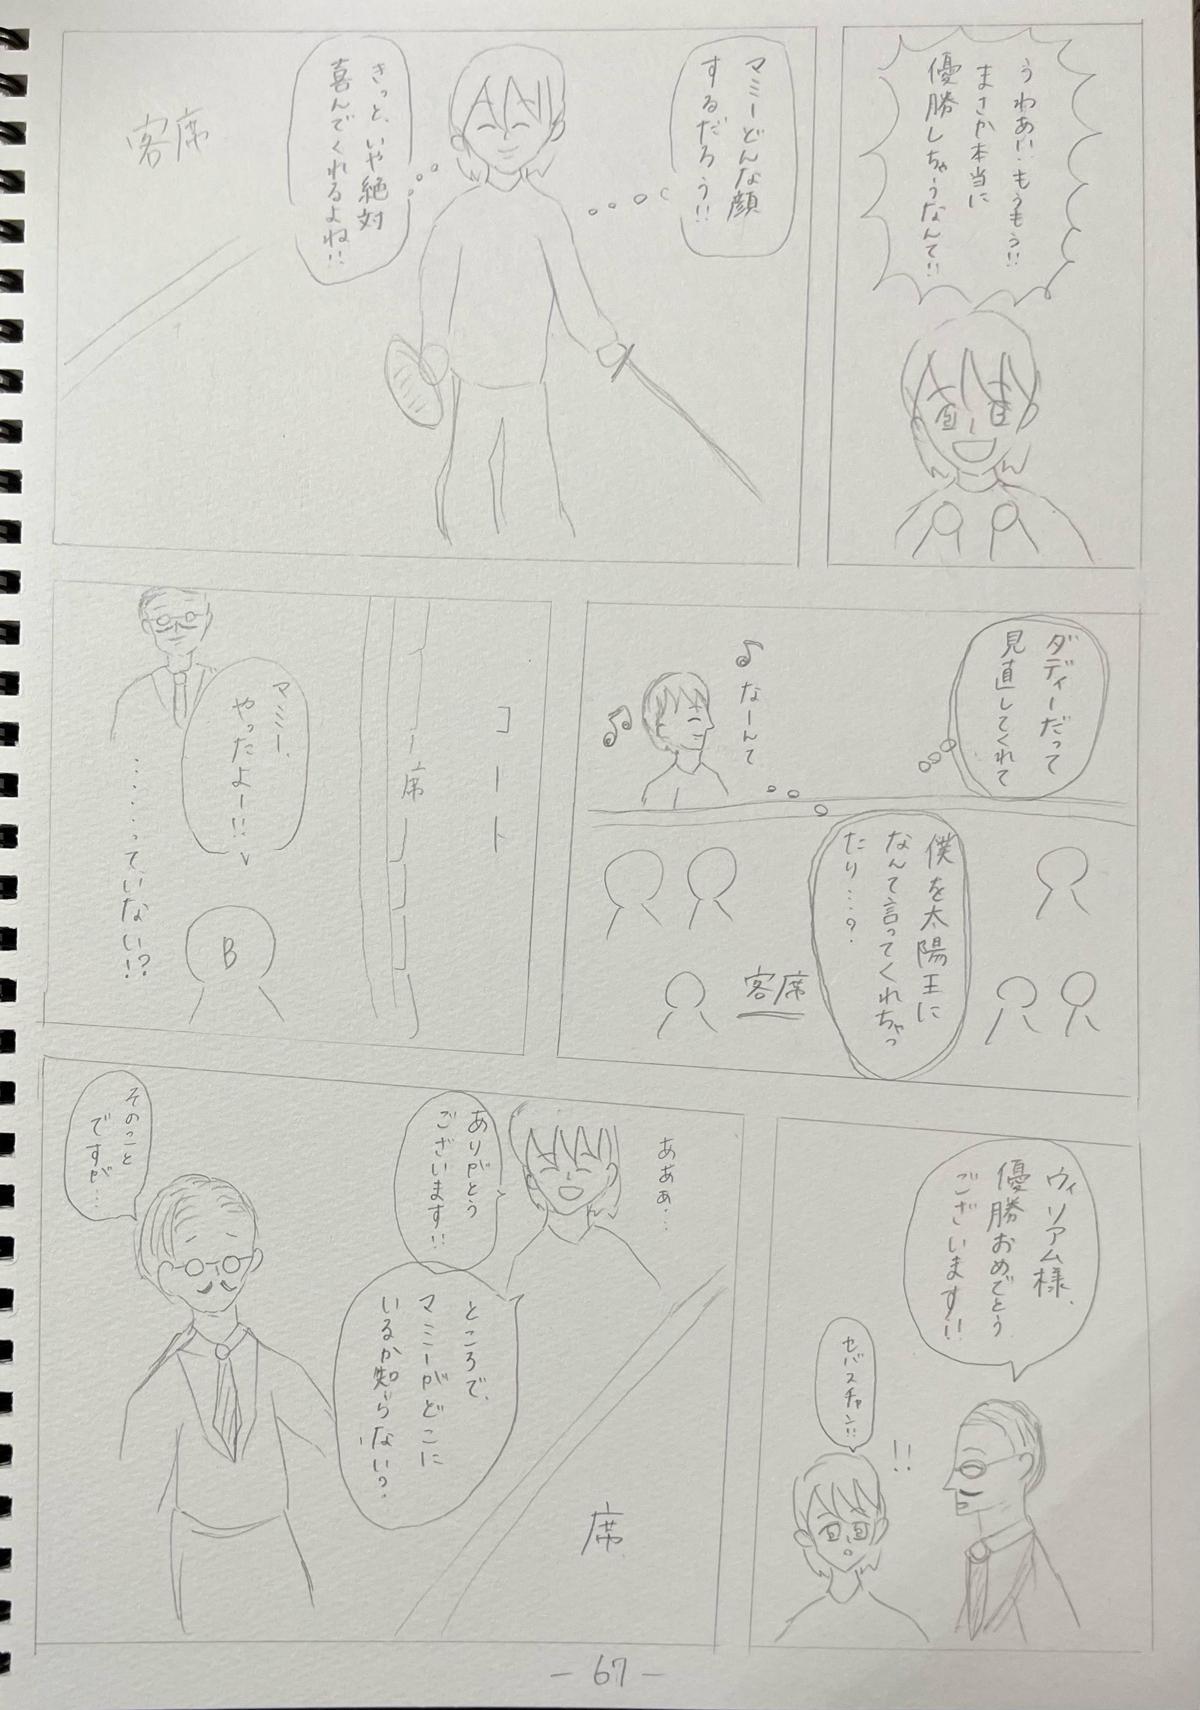 うわあい、もうもう!!
まさか本当に
優勝しちゃうなんて!!
マミーどんな顔
するだろう!!
きっと、いや絶対
喜んでくれるよね!!
客席
ダディーだって
見直してくれて
僕を太陽王に
なんて言ってくれちゃっ
たり…?
なーんて
客席
コート
席
マミー、
やったよー!!
……って、いない!?
B
ウィリアム様、
優勝おめでとう
ございます!!
セバスチャン!!
!!
あぁぁ…
ありがとう
ございます!!
ところで、
マミーがどこに
いるか知らない?
そのこと
ですが…
席
-67-